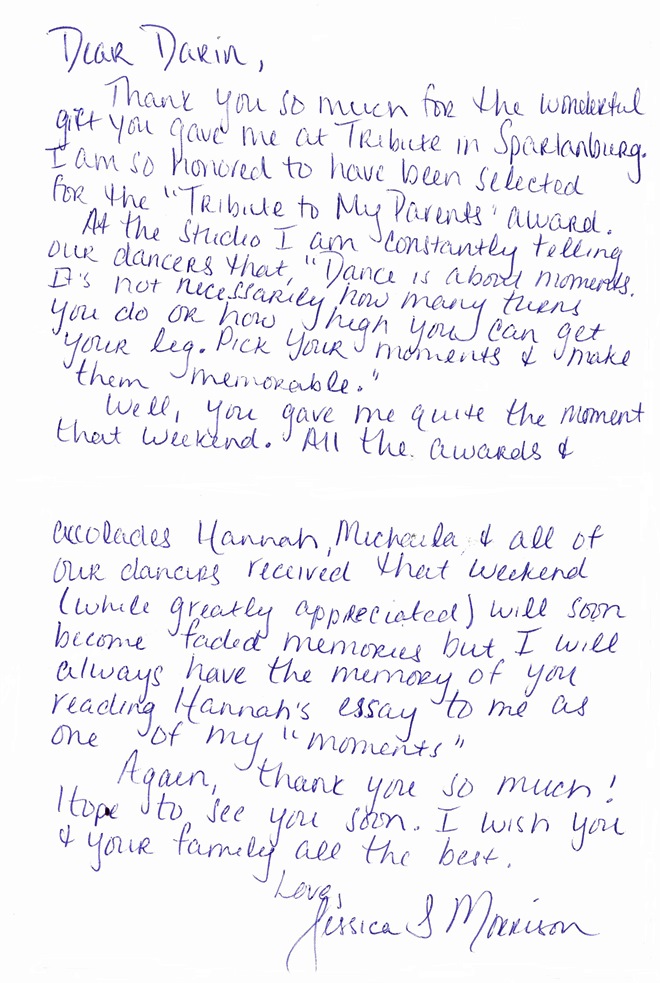 Dear Darin,
Thank you so much for the wonderful
gift you gave me at Tribute in Spartanburg.
I am so honored to have been selected
for the "Tribute to My Parents" award.
At the studio I am constantly telling
our dancers that, "Dance is about moments.
It's not necessarily how many turns
you do or how high you can get
your leg. Pick your moments & make
them memorable."
Well, you gave me quite the moment
that weekend. All the awards &
accolades Hannah, Michaela & all of
our dancers received that weekend
(while greatly appreciated) will soon
become faded memories but I will
always have the memory of you
reading Hannah's essay to me as
one of my "moments"
Again, thank you so much!
Hope to see you soon. I wish you
& your family all the best.
Love,
Jessica S Morrison